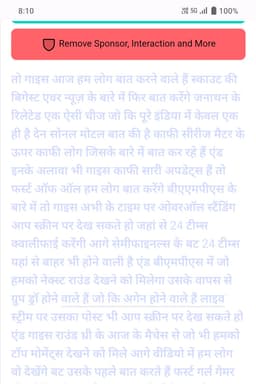 8:10
5G
100%
Remove Sponsor, Interaction and More
तो गाइस आज हम लोग बात करने वाले हैं स्काउट की
बिगेस्ट एवर न्यूज़ के बारे में फिर बात करेंगे जनाथन के
रिलेटेड एक ऐसी चीज जो कि पूरे इंडिया में केवल एक
ही है देन सोनल मोटल बात की है काफी सीरीज मैटर के
ऊपर काफी लोग जिसके बारे में बात कर रहे हैं एंड
इनके अलावा भी गाइस काफी सारी अपडेट्स हैं तो
फर्स्ट ऑफ ऑल हम लोग बात करेंगे बीएमपीएस के
बारे में तो गाइस अभी के टाइम पर ओवरऑल स्टैंडिंग
आप स्क्रीन पर देख सकते हो जहां से 24 टीम्स
क्वालीफाई करेंगी आगे सेमीफाइनल्स के बट 24 टीम्स
यहां से बाहर भी होने वाली है एंड बीएमपीएस में जो
हमको नेक्स्ट राउंड देखने को मिलेगा उसके वापस से
ग्रुप ड्रॉ होने वाले हैं जो कि अगेन होने वाले हैं लाइव
स्ट्रीम पर उसका पोस्ट भी आप स्क्रीन पर देख सकते हो
एंड गाइस राउंड थ्री के आज के मैचेस से जो भी हमको
टॉप मोमेंट्स देखने को मिले आगे वीडियो में हम लोग
वो देखेंगे बट उसके पहले बात करते हैं फर्स्ट गर्ल गेमर